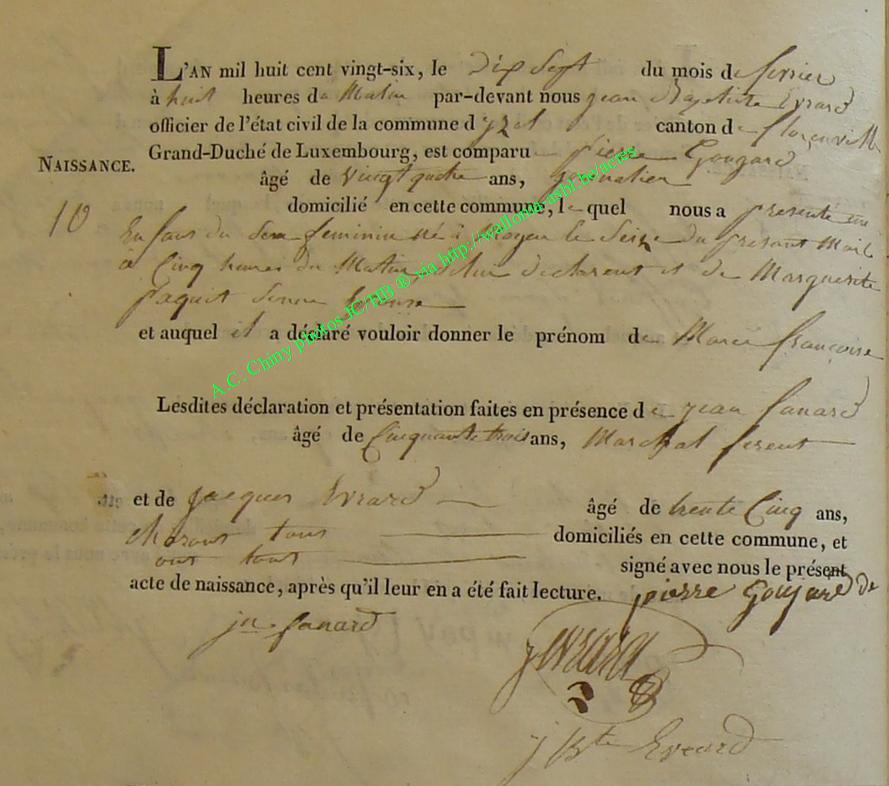 L'AN mil huit cent vingt-six, le dix Sept du mois de fevrier
à huit heures du Matin par-devant nous jean Baptiste Evrard
officier de l'état civil de la commune d'yzel canton de florenville
Grand-Duché de Luxembourg, est comparu pierre Goujard
NAISSANCE.
âgé de Vingt quatre ans, journalier
domicilié en cette commune, le quel nous a presenté un
10
Enfant du Sexe feminin né à Moyen le Seize du presant Mois
à Cinq heures du Matin de lui declarent et de Marguerite
paquet Sonne Epouse
et auquel il a déclaré vouloir donner le prénom de Marie françoise
Lesdites déclaration et présentation faites en présence de jean fanard
âgé de Cinquante trois ans, Marchal ferent
et de jacques Evrard âgé de trente Cinq ans,
tous domiciliés en cette commune, et
ont tous signé avec nous le présent
acte de naissance, après qu'il leur en a été fait lecture. pierre Goujard
jn fanard
J Evrard
J Bte Evrard
A.C. Chiny photos JC/HB ® via http://wallonia-asbl.be/actes